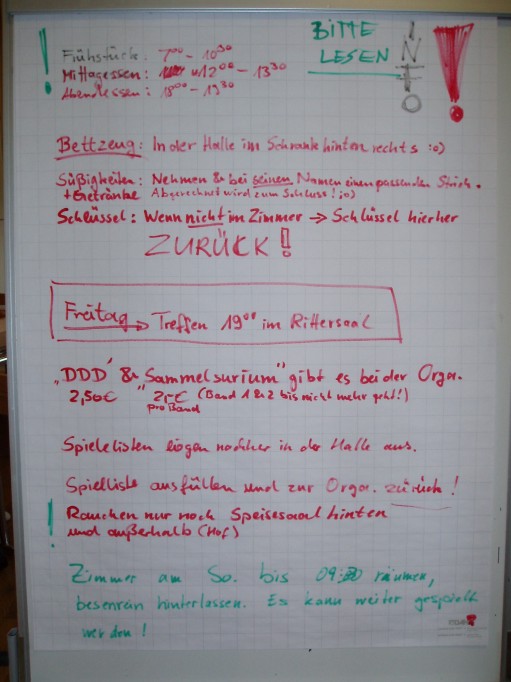 ! BITTE LESEN INFO !
Frühstück: 7⁰⁰ - 10³⁰
Mittagessen: 12⁰⁰ - 13³⁰
Abendessen: 18⁰⁰ - 19³⁰
Bettzeug: In der Halle im Schrank hinten rechts :o)
Süßigkeiten: Nehmen & bei seinen Namen einen passenden Strich.
+ Getränke Abgerechnet wird zum Schluss! ;o)
Schlüssel: Wenn nicht im Zimmer → Schlüssel hierher
ZURÜCK!
Freitag → Treffen 19⁰⁰ im Rittersaal
"DDD" & "Sammelsurium" gibt es bei der Orga.
2,50€ 2,-€ (Band 1 & 2 bis nicht mehr geht!)
pro Band
Spielelisten liegen nachher in der Halle aus.
Spielliste ausfüllen und zur Orga. zurück!
! Rauchen nur noch Speisesaal hinten
und außerhalb (Hof)
Zimmer am So. bis räumen,
besenrein hinterlassen. Es kann weiter gespielt
werden!